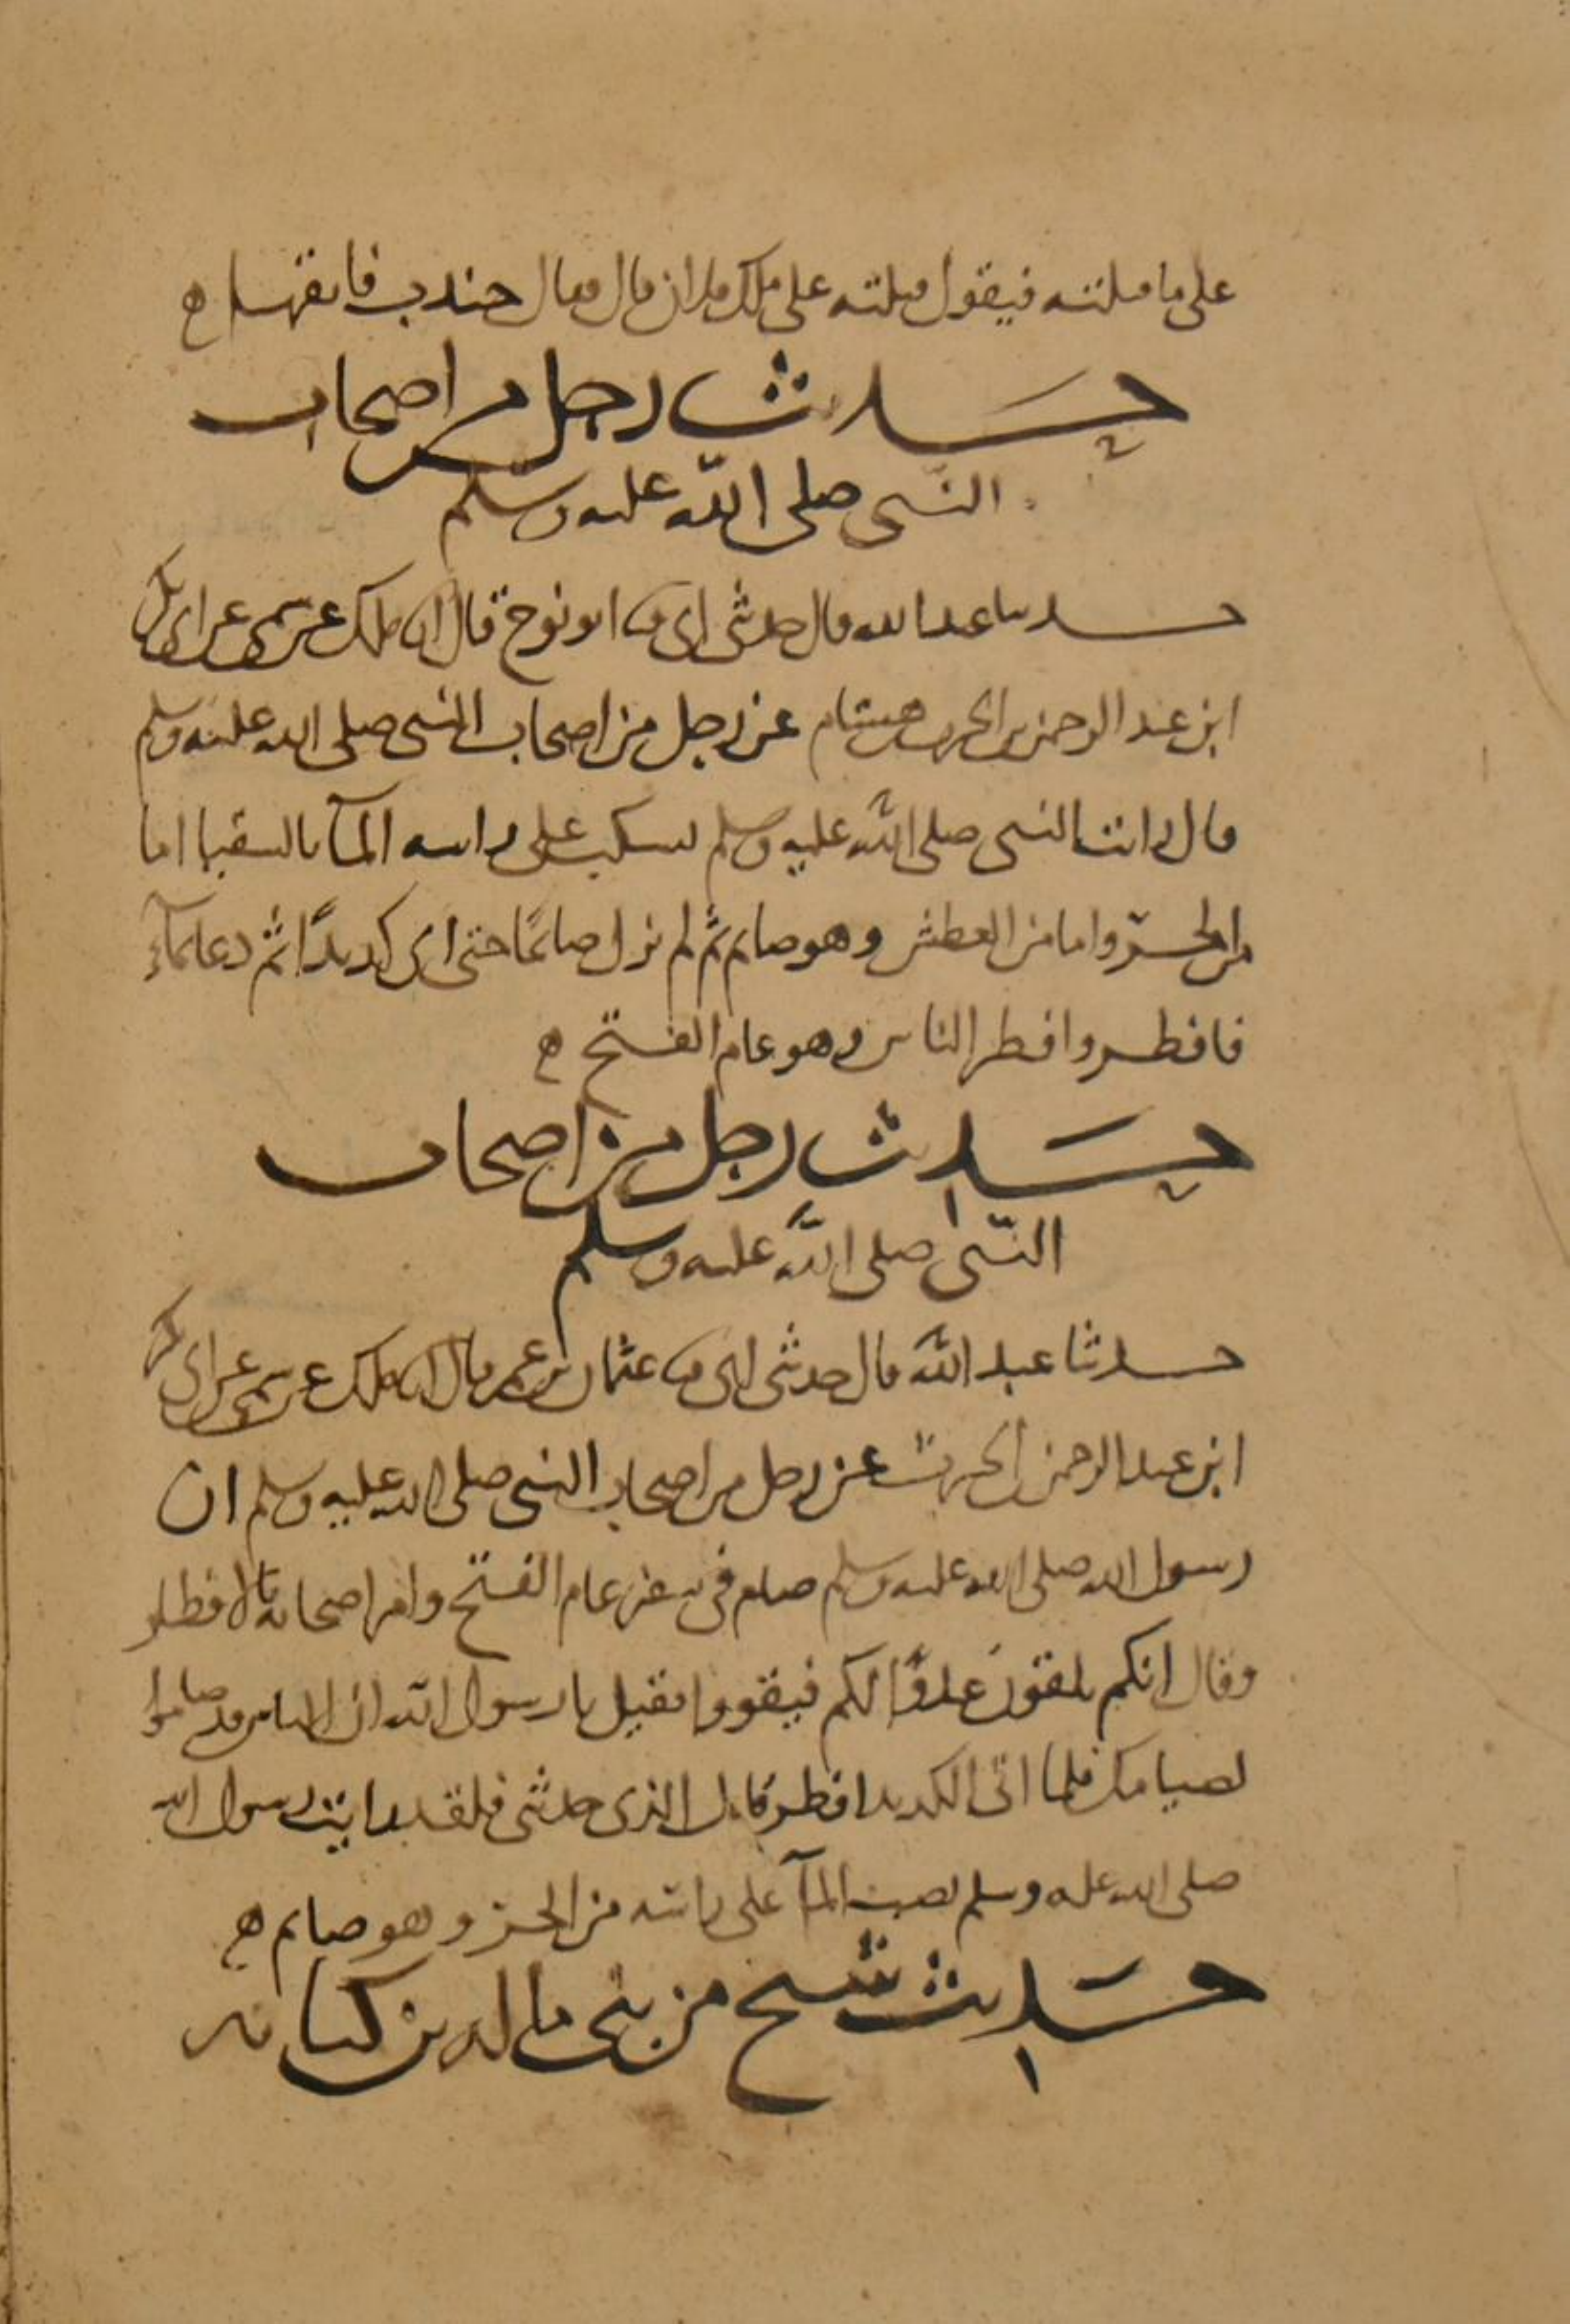 على ما قتلته فيقول قتلته على ملك فلان قال فقال جندب فاتقها ه
حديث رجل من اصحاب
النبي صلى الله عليه وسلم
حدثنا عبد الله قال حدثني ابي نا ابو نوح قال انا ملك عن سمي عن ابي بكر
ابن عبد الرحمن بن الحرث بن هشام عن رجل من اصحاب النبي صلى الله عليه وسلم
قال رايت النبي صلى الله عليه وسلم يسكب على راسه المآ بالسقيا اما
من الحرّ واما من العطش وهو صايم ثم لم يزل صائمًا حتى اتى كديدًا ثم دعا بمآء
فافطر وافطر الناس وهو عام الفتح ه
حديث رجل من اصحاب
النبي صلى الله عليه وسلم
حدثنا عبد الله قال حدثني ابي نا عثمان بن عمر قال انا ملك عن سمي عن ابي بكر
ابن عبد الرحمن بن الحرث عن رجل من اصحاب النبي صلى الله عليه وسلم ان
رسول الله صلى الله عليه وسلم صام في سفر عام الفتح وامر اصحابه بالافطار
وقال انكم تلقون عدوًا لكم فتقووا فقيل يا رسول الله ان الناس قد صاموا
لصيامك فلما اتى الكديد افطر قال الذي حدثني فلقد رايت رسول الله
صلى الله عليه وسلم يصب المآ على راسه من الحر وهو صايم ه
حديث شيخ من بني مالك بن كنانه